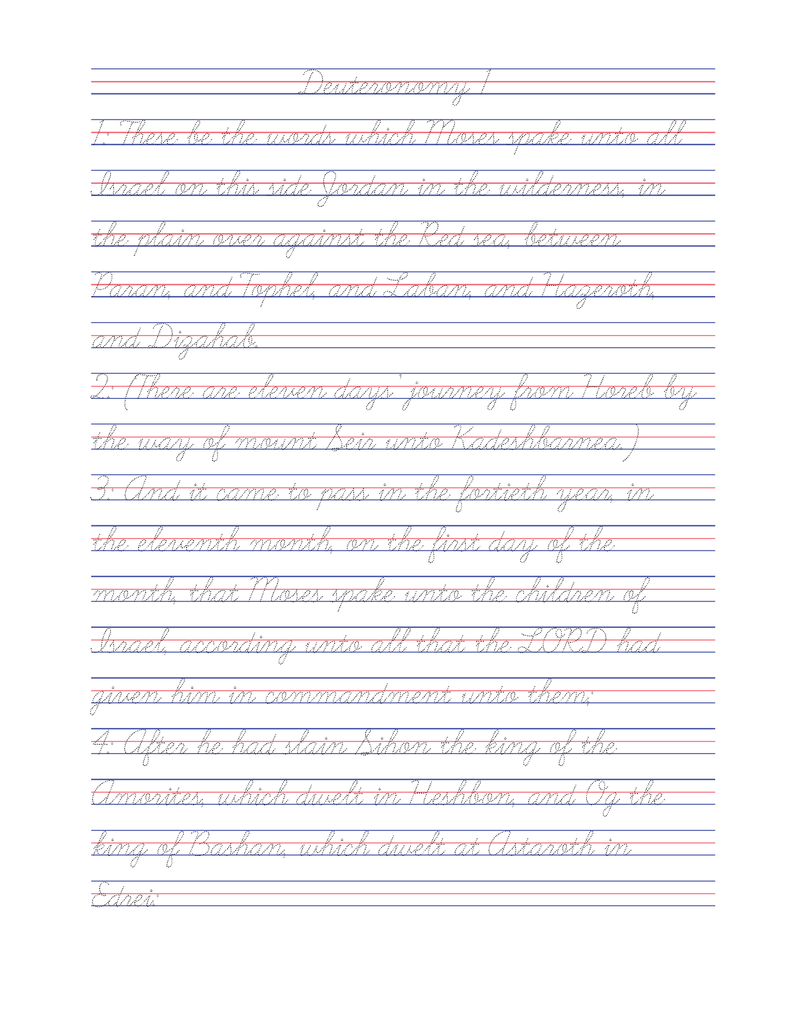 Deuteronomy 1
1: These be the words which Moses spake unto all
Israel on this side Jordan in the wilderness, in
the plain over against the Red sea, between
Paran, and Tophel, and Laban, and Hazeroth,
and Dizahab.
2: (There are eleven days' journey from Horeb by
the way of mount Seir unto Kadeshbarnea.)
3: And it came to pass in the fortieth year, in
the eleventh month, on the first day of the
month, that Moses spake unto the children of
Israel, according unto all that the LORD had
given him in commandment unto them;
4: After he had slain Sihon the king of the
Amorites, which dwelt in Heshbon, and Og the
king of Bashan, which dwelt at Astaroth in
Edrei: